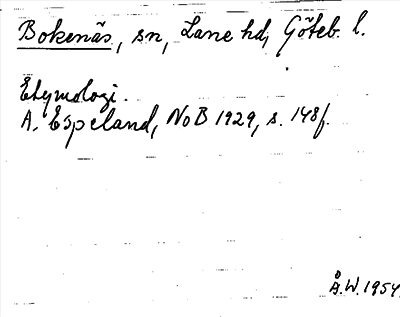 Bokenäs, sn, Lane hd, Göteb. l.
Etymologi.
A. Espeland, NoB 1929, s. 148f.
Å.W. 1954.